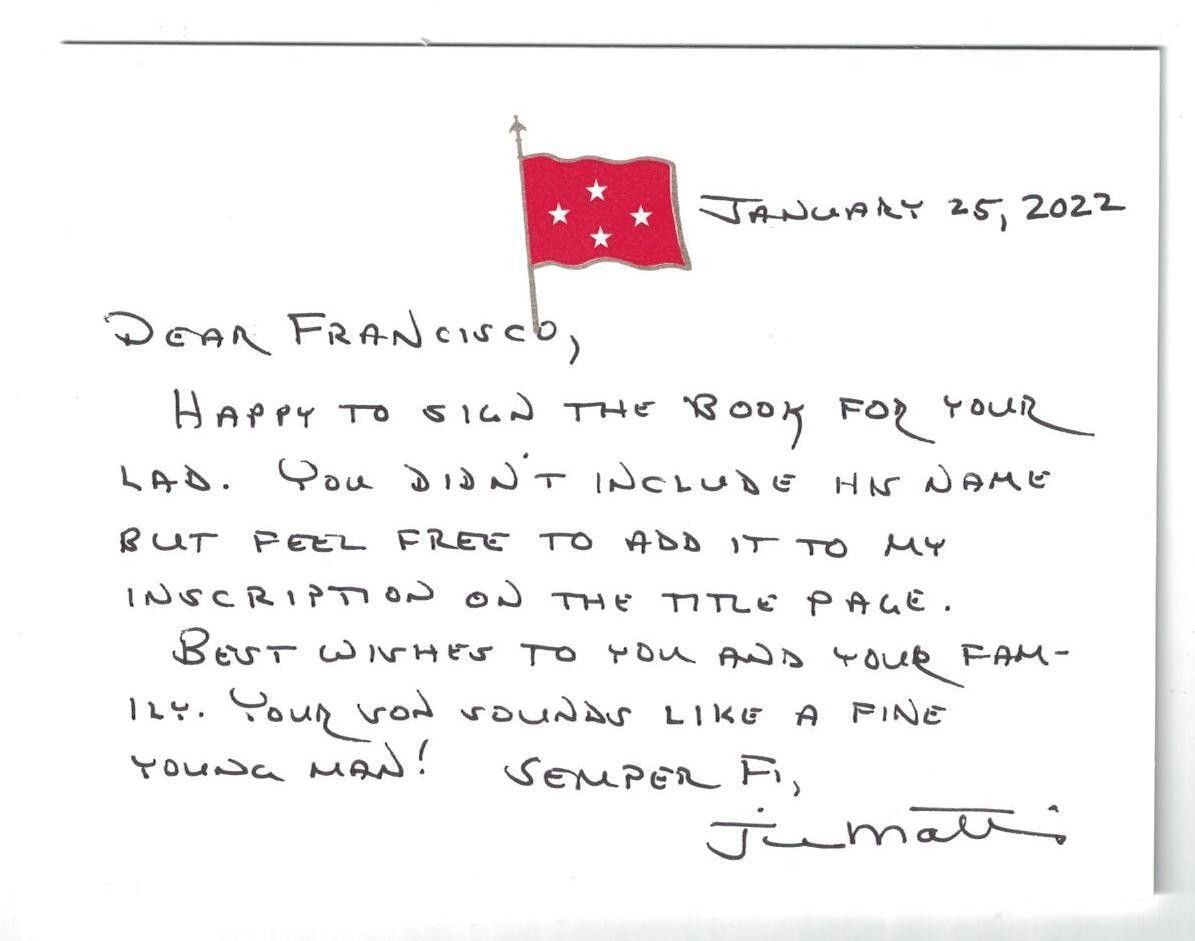 JANUARY 25, 2022
DEAR FRANCISCO,
HAPPY TO SIGN THE BOOK FOR YOUR
LAD. YOU DIDN'T INCLUDE HIS NAME
BUT FEEL FREE TO ADD IT TO MY
INSCRIPTION ON THE TITLE PAGE.
BEST WISHES TO YOU AND YOUR FAM-
ILY. YOUR SON SOUNDS LIKE A FINE
YOUNG MAN! SEMPER FI,
Jim Mattis